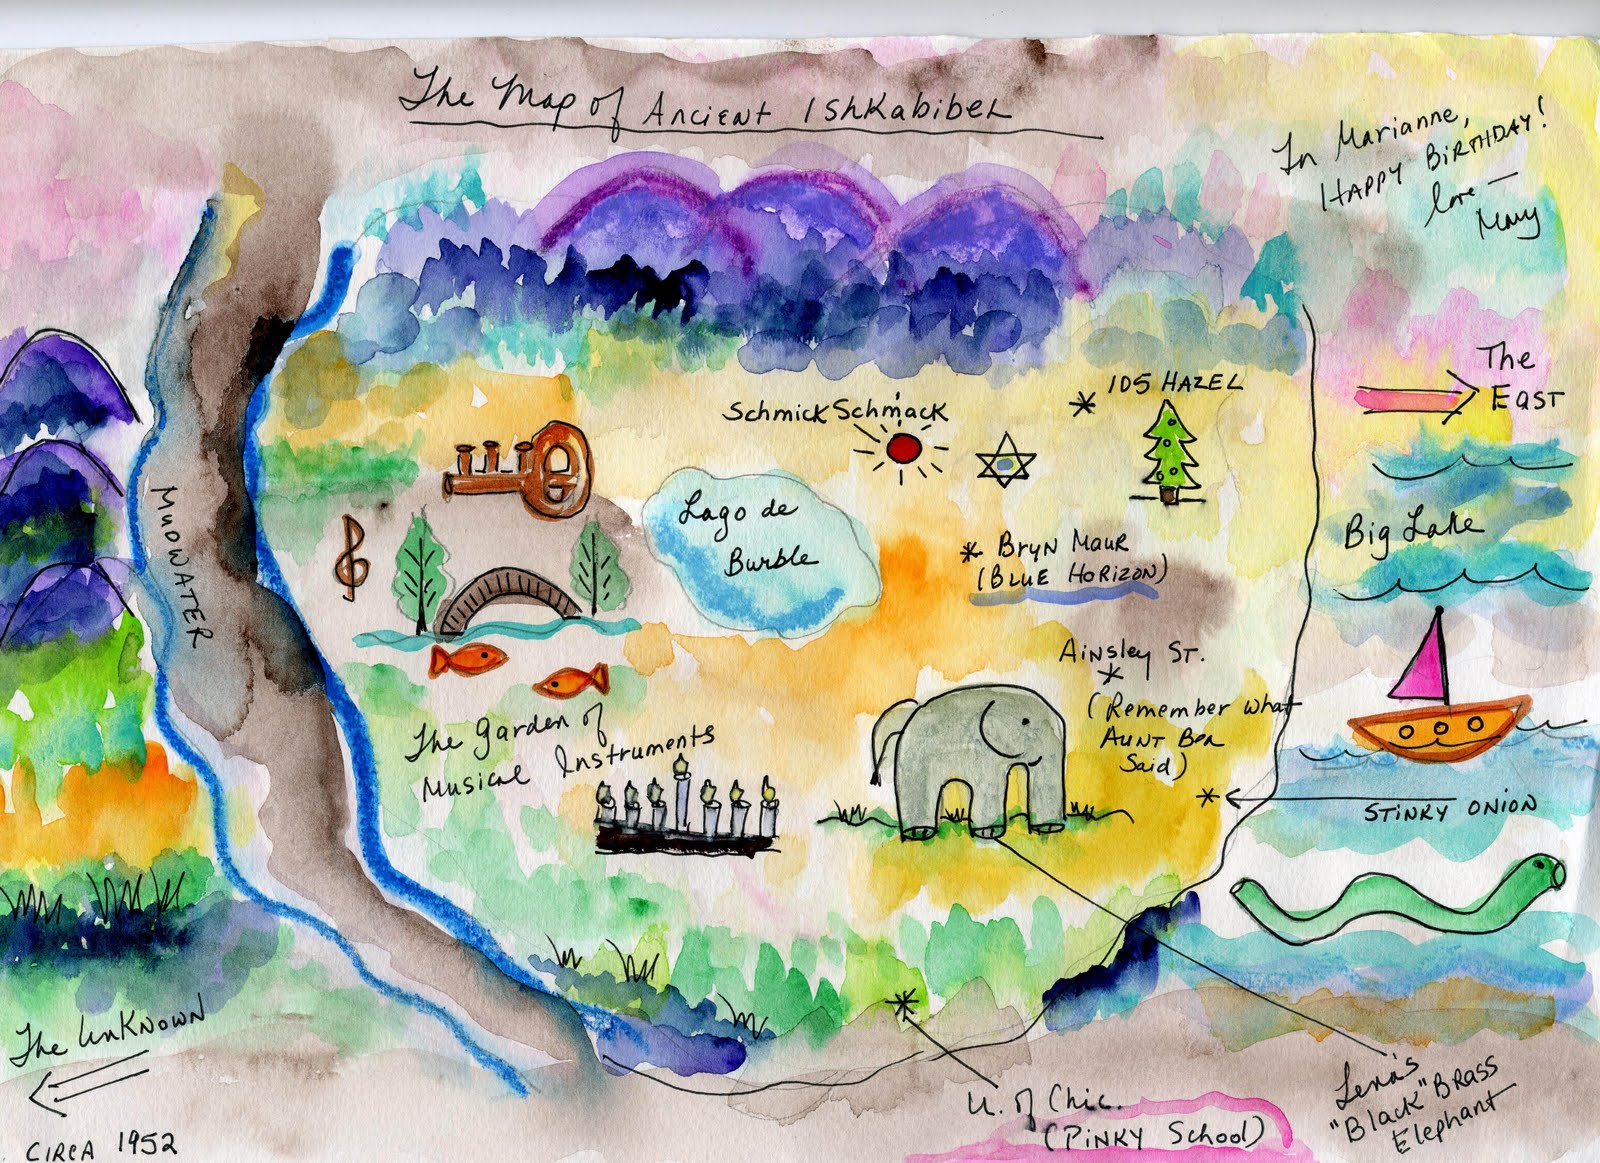 The Map of Ancient Ishkabibel
Marianne,
Happy Birthday!
love —
Mary
The
East
105 Hazel
Schmick Schmack
Lago de
Burble
Big Lake
Bryn Maur
(Blue Horizon)
Mudwater
Ainsley St.
(Remember what
Aunt Bea
Said)
The Garden of
Musical Instruments
Stinky Onion
The Unknown
U. of Chic.
(Pinky School)
Lena's
"Black" Brass
Elephant
Circa 1952